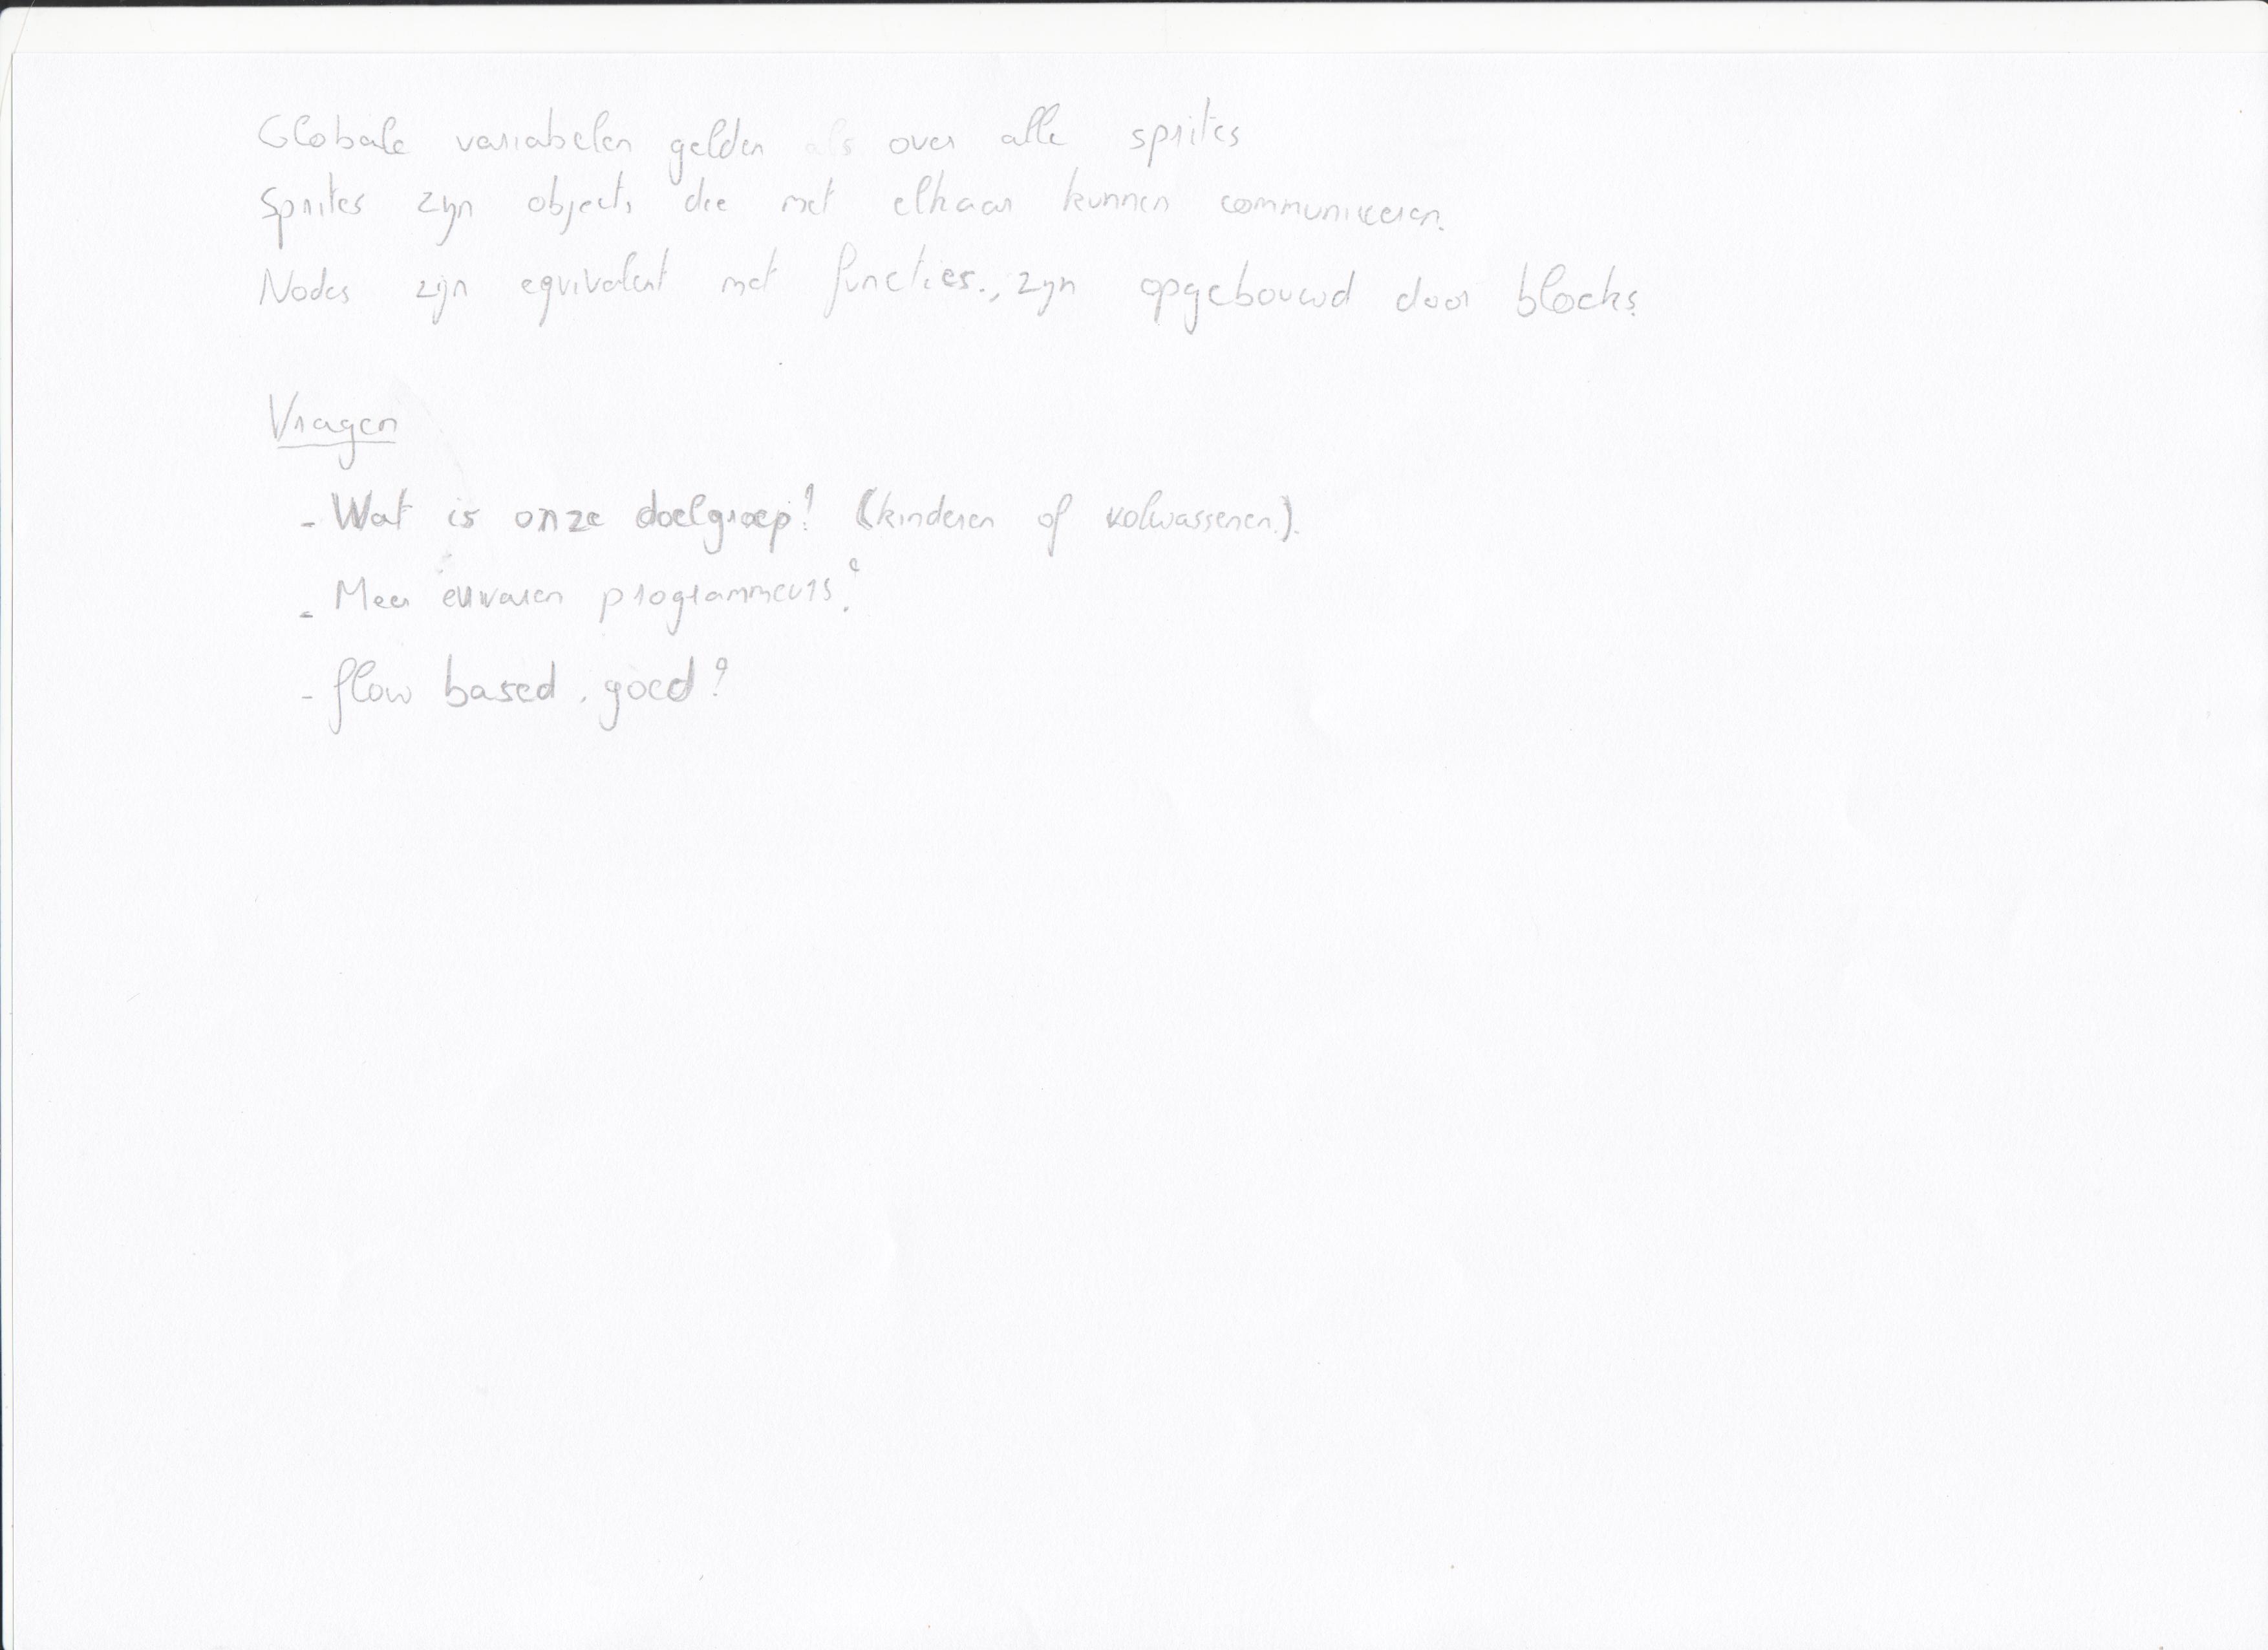 Globale variabelen gelden over alle sprites
Sprites zijn objects die met elkaar kunnen communiceren.
Nodes zijn equivalent met functies., zijn opgebouwd door blocks.
Vragen
- Wat is onze doelgroep? (kinderen of volwassenen.).
- Meer programmeurs?
- flow based, goed?